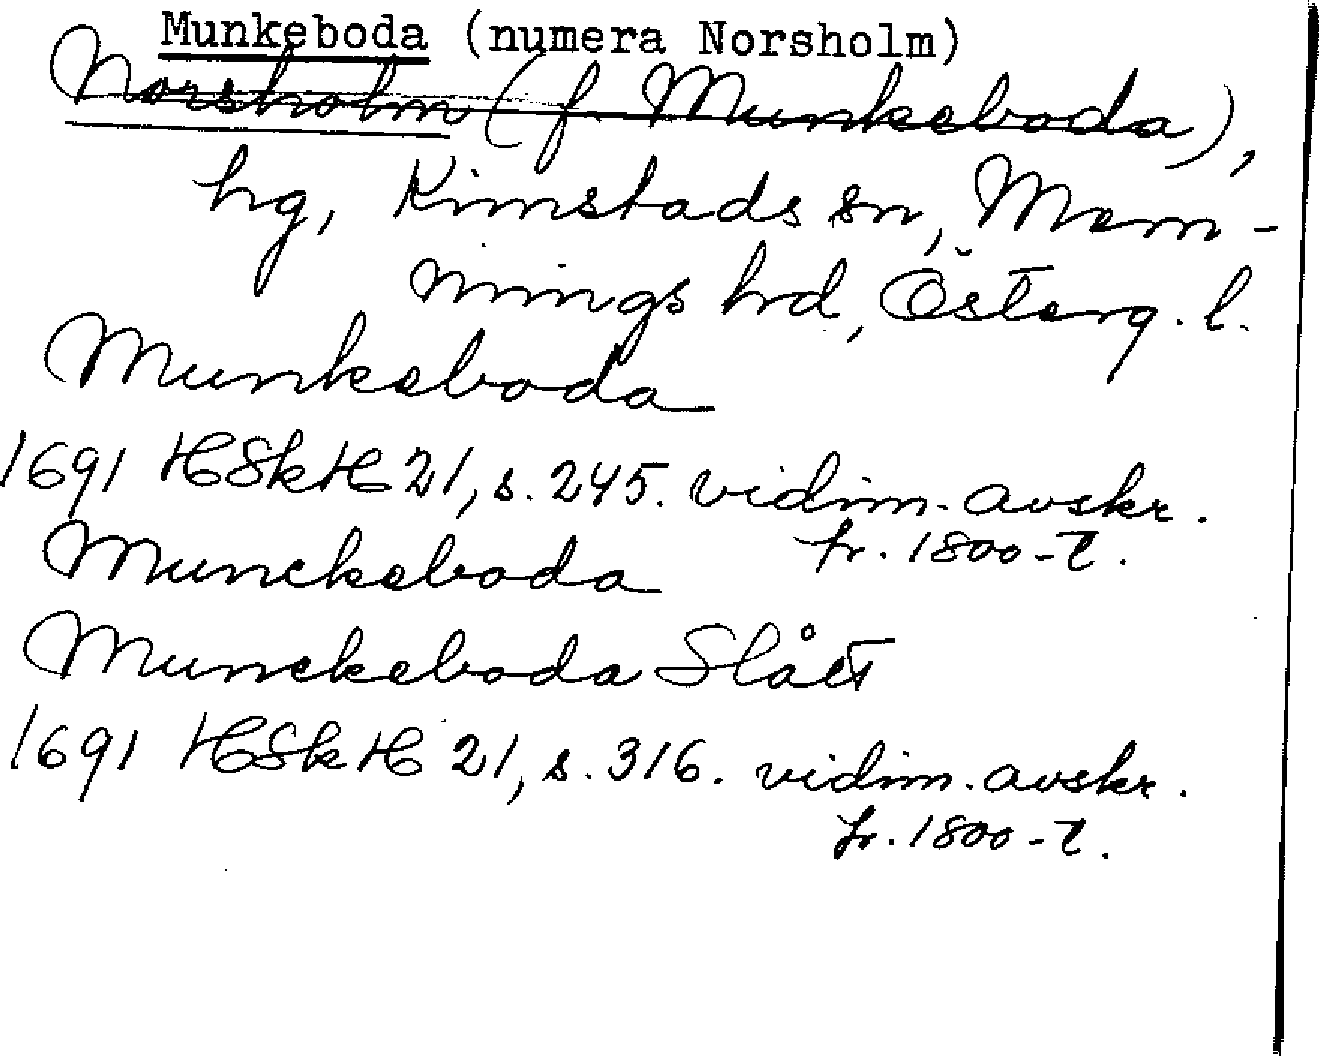 Munkeboda (numera Norsholm)
Norsholm (f. Munkeboda),
hg, Kimstads sn, Mem-
mings hd, Österg. l.
Munkeboda
1691 HSkH 21, s. 245. vidim. avskr.
fr. 1800-t.
Munckeboda
Munckeboda Slått
1691 HSkH 21, s. 316. vidim. avskr.
fr. 1800-t.